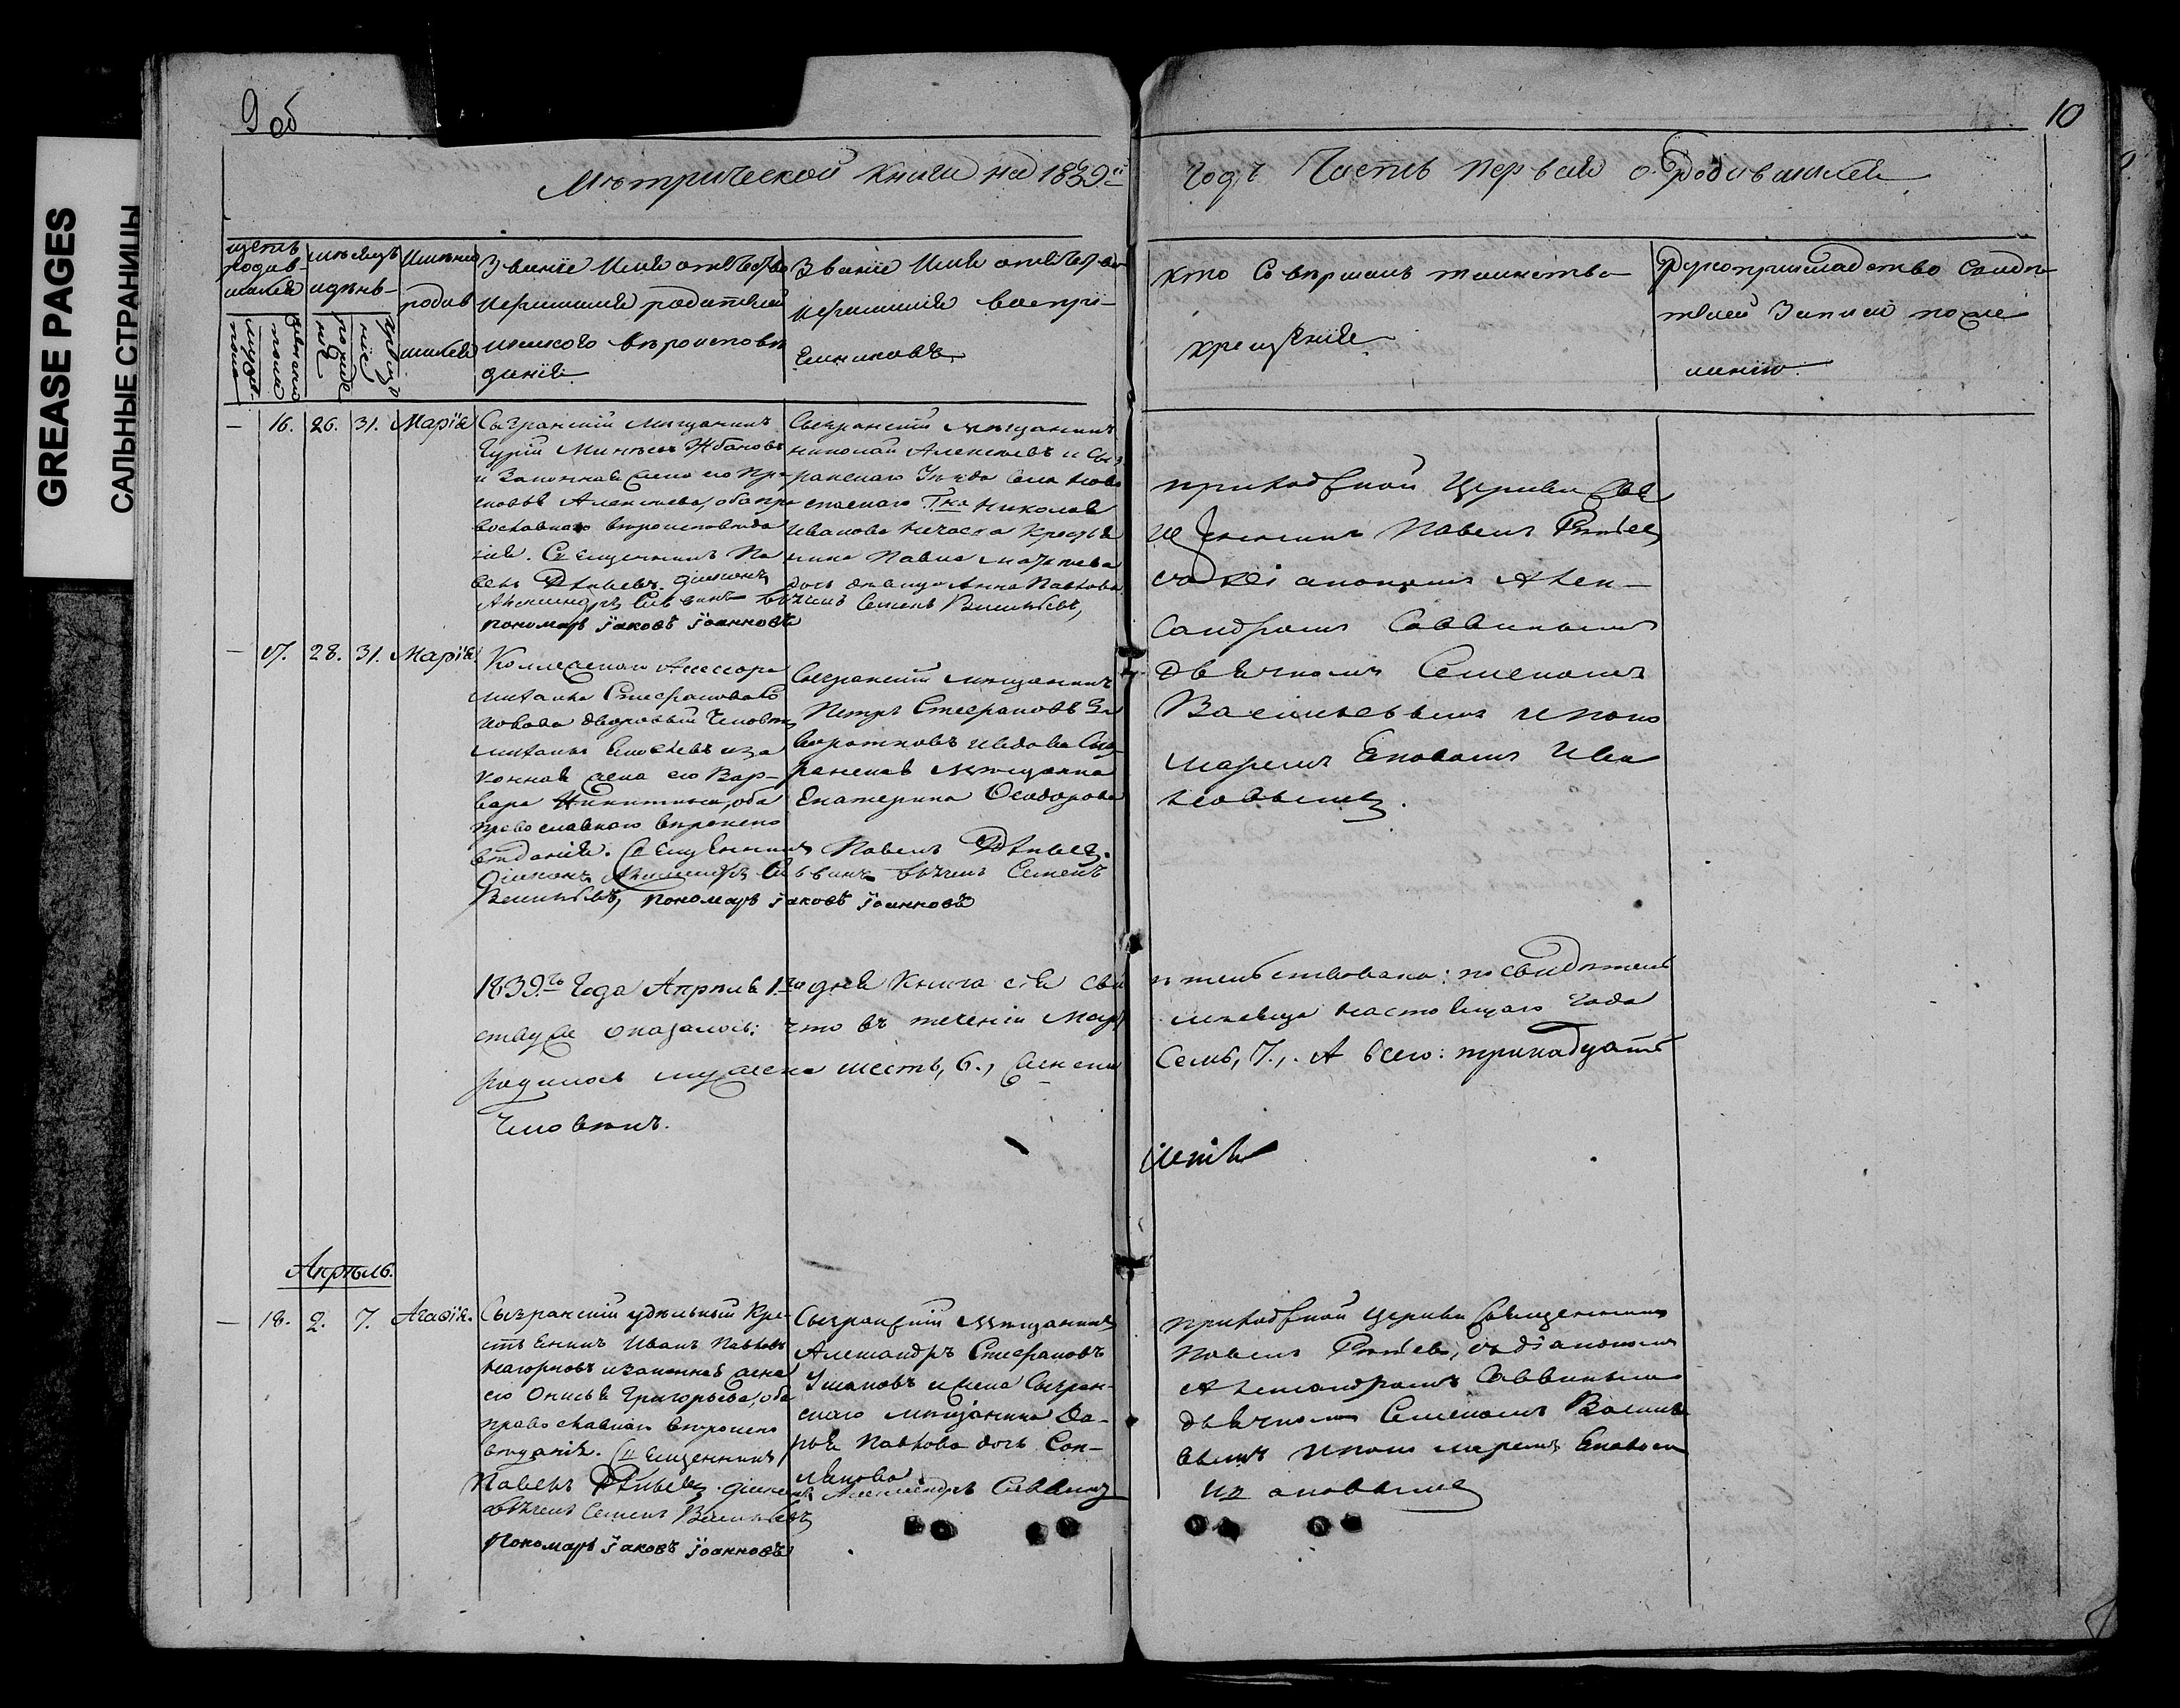 GREASE PAGES
САЛЬНЫЕ СТРАНИЦЫ
9 об
10
Метрической книги на 1839й
годъ Часть первая о Родившихся
щетъ родив-
шихся
мужеска
пола
женска
пола
месяцъ
и день
рожде
ния
креще
ния
Имена
родив
шихся
Званіе Имя отчество
и фамилия родителей
и какого вероисповѣ
данія.
Званіе Имя отчество
и фамилия воспрі-
емниковъ
кто Совершалъ таинство
крещенія
Рукоприкладство Свиде
телей Записи по же
ланію.
— 16. 26. 31. Марія
Сызранскій Мещанинъ
Гурій Жбановъ
и Законная жена его Пра
сковья Алексеева, оба пра
вославнаго вероисповеда
нія. Священникъ Па
велъ діаконъ
Александръ Саввинъ дьячекъ Семенъ Васильевъ,
пономарь Іаковъ Іоанновъ
Сызранскій мещанинъ
николай Алексеевъ и Сыз
ранскаго Уезда Села Ново
спаскаго Гна Николая
Иванова крестья
нина Павла
дочь девица Анна Павлова
приходской Церкви Свя
щенникъ Павелъ
со діакономъ Алек-
сандромъ Саввинымъ
дьячкомъ Семеномъ
Васильевымъ и поно
маремъ Яковомъ Ива
новымъ.
— 17. 28. 31. Марія
Коллескаго Асессора
михаила Стефанова
дворовый человекъ
михаилъ и за
конная жена его Вар-
вара Никитина, оба
православнаго вероиспо
веданія. Священникъ Павелъ
Діаконъ Александръ Саввинъ дьячекъ Семенъ
Васильевъ, пономарь Іаковъ Іоанновъ
Сызранскій мещанинъ
Петръ Стефановъ За
воротковъ и вдова Сыз-
ранская мещанка
Екатерина Феодорова
1839го Года Апреля 1го дня Книга сія свидетельствована: по свидетель
ству же оказалось: что въ теченіи Марта месяца настоящаго года
родилось мужеска шесть, 6., женска Семь, 7., А всего: тринадцать
человекъ.
Апрель.
— 18. 2. 7. Агафія.
Сызранскій удельный Кре-
стьянинъ Иванъ Павловъ
Нагорновъ и законная жена
его Григорьева, оба
православнаго вероиспо
веданія. Священникъ
Павелъ діаконъ Александръ Саввинъ
дьячекъ Семенъ Васильевъ
Пономарь Іаковъ Іоанновъ
Сызранскій мещанинъ
Александръ Стефановъ
Ушаковъ и жена Сызран-
скаго мещанина Да-
рья Павлова дочь
приходской Церкви Священникъ
Павелъ со діакономъ
Александромъ Саввинымъ
дьячкомъ Семеномъ Василье
вымъ и пономаремъ Яковомъ
Ивановымъ